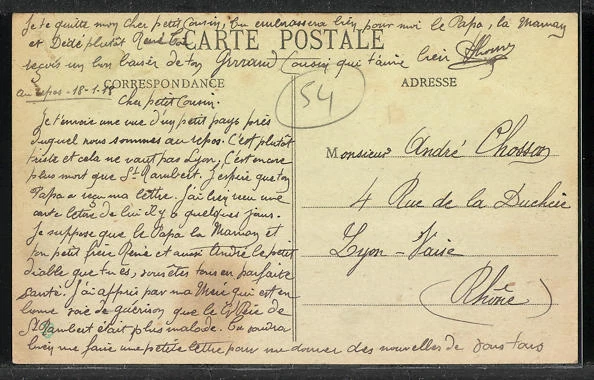 Je te quitte mon cher petit Cousin, tu embrassera bien pour moi le Papa, la Maman
et Dédé plutôt René
reçois un bon baiser de ton Cousin qui t'aime bien
CARTE POSTALE
CORRESPONDANCE
ADRESSE
Au repos - 18-1-
54
Cher petit Cousin.
Je t'envoie une vue d'un petit pays près
duquel nous sommes au repos. C'est plutôt
triste et cela ne vaut pas Lyon, C'est encore
plus mort que St Rambert. J'espère que ton
Papa a reçu ma lettre. J'ai bien reçu une
carte lettre de lui il y a quelques jours.
Je suppose que le Papa la Maman et
ton petit frère René et aussi André le petit
diable que tu es, vous êtes tous en parfaite
santé. J'ai appris par ma Mère qui est en
bonne voie de guérison que le de
St Rambert était plus malade. Tu voudra
bien me faire une petite lettre pour me donner des nouvelles de vous tous
Monsieur André
4 Rue de la Duchère
Lyon - Vaise
(Rhône)